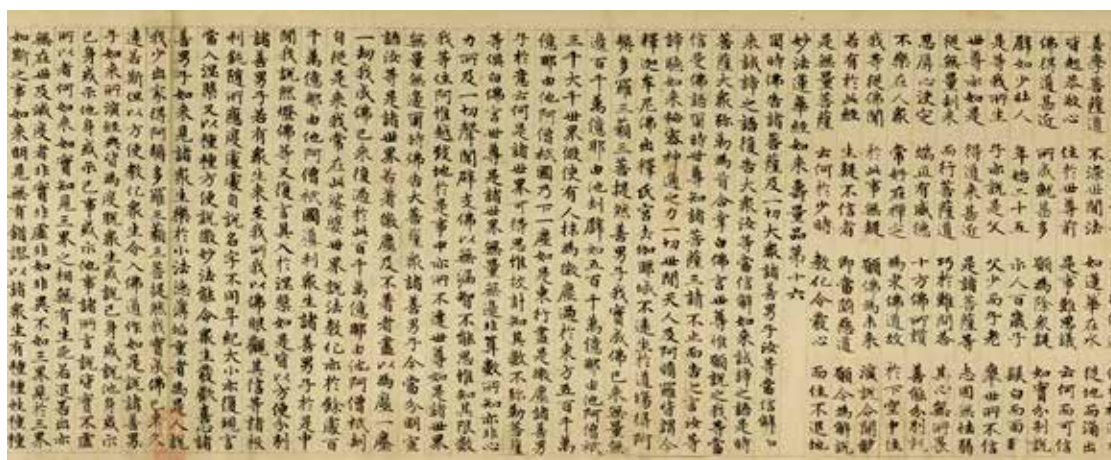 善學菩薩道 不染世間法 如蓮華在水 從地而涌出
皆起恭敬心 住於世尊前 是事難思議 云何而可信
佛得道甚近 所成就甚多 願為除衆疑 如實分別說
譬如少壯人 年始二十五 示人百歲子 髮白而面皺
是等我所生 子亦說是父 父少而子老 舉世所不信
世尊亦如是 得道來甚近 是諸菩薩等 志固無怯弱
從無量劫來 而行菩薩道 巧於難問答 其心無所畏
忍辱心決定 端正有威德 十方佛所讚 善能分別說
不樂在人衆 常好在禪定 為求佛道故 於下空中住
我等從佛聞 於此事無疑 願佛為未來 演說令開解
若有於此經 生疑不信者 即當墮惡道 願今為解說
是無量菩薩 云何於少時 教化令發心 而住不退地
妙法蓮華經如來壽量品第十六
尒時佛告諸菩薩及一切大衆諸善男子汝等當信解如
來誠諦之語復告大衆汝等當信解如來誠諦之語是時
菩薩大衆彌勒為首合掌白佛言世尊惟願說之我等當
信受佛語尒時世尊知諸菩薩三請不止而告之言汝等
諦聽如來秘密神通之力一切世間天人及阿脩羅皆謂今
釋迦牟尼佛出釋氏宮去伽耶城不遠坐於道場得阿
耨多羅三藐三菩提然善男子我實成佛已來無量無
邊百千萬億那由他劫譬如五百千萬億那由他阿僧祇
三千大千世界假使有人抹為微塵過於東方五百千萬
億那由他阿僧祇國乃下一塵如是東行盡是微塵諸善男
子於意云何是諸世界可得思惟校計知其數不彌勒菩薩
等俱白佛言世尊是諸世界無量無邊非算數所知亦非心
力所及一切聲聞辟支佛以無漏智不能思惟知其限數
我等住阿惟越致地於是事中亦所不達世尊如是諸世界
無量無邊尒時佛告大菩薩衆諸善男子今當分明宣
語汝等是諸世界若著微塵及不著者盡以為塵一塵
一劫我成佛已來復過於此百千萬億那由他阿僧祇劫
自從是來我常在此娑婆世界說法教化亦於餘處百
千萬億那由他阿僧祇國導利衆生諸善男子於是中
間我說然燈佛等又復言其入於涅槃如是皆以方便分別
諸善男子若有衆生來至我所我以佛眼觀其信等諸根
利鈍隨所應度處處自說名字不同年紀大小亦復現言
當入涅槃又以種種方便說微妙法能令衆生發歡喜心諸
善男子如來見諸衆生樂於小法德薄垢重者為是人說
我少出家得阿耨多羅三藐三菩提然我實成佛已來久
遠若斯但以方便教化衆生令入佛道作如是說諸善男
子如來所演經典皆為度脫衆生或說己身或說他身或示
己身或示他身或示己事或示他事諸所言說皆實不虛
所以者何如來如實知見三界之相無有生死若退若出亦
無在世及滅度者非實非虛非如非異不如三界見於三界
如斯之事如來明見無有錯謬以諸衆生有種種性種種